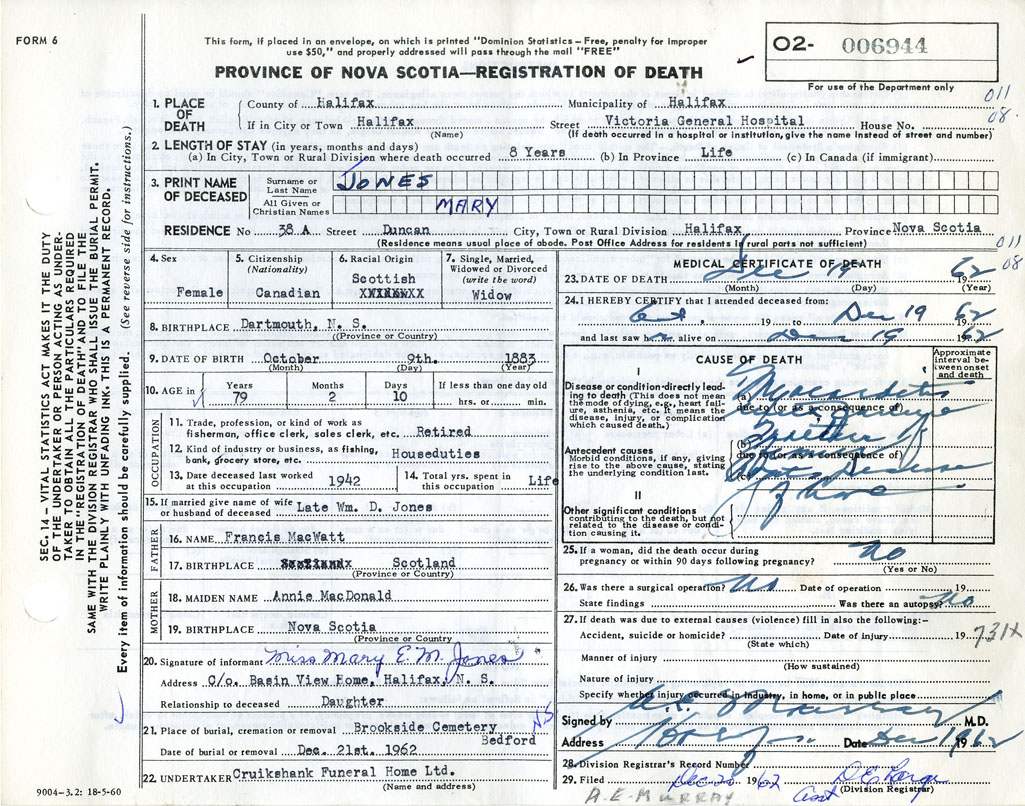 FORM 6
This form, if placed in an envelope, on which is printed "Dominion Statistics – Free, penalty for improper
use $50," and properly addressed will pass through the mail "FREE"
O2- 006944
PROVINCE OF NOVA SCOTIA—REGISTRATION OF DEATH
For use of the Department only
011
08
SEC. 14 – VITAL STATISTICS ACT MAKES IT THE DUTY
OF THE UNDERTAKER OR PERSON ACTING AS UNDER-
TAKER TO OBTAIN ALL THE PARTICULARS REQUIRED
IN THE "REGISTRATION OF DEATH" AND TO FILE THE
SAME WITH THE DIVISION REGISTRAR WHO SHALL ISSUE THE BURIAL PERMIT.
WRITE PLAINLY WITH UNFADING INK. THIS IS A PERMANENT RECORD.
Every item of information should be carefully supplied. (See reverse side for instructions.)
1. PLACE OF DEATH
County of Halifax Municipality of Halifax
If in City or Town Halifax Street Victoria General Hospital House No.
(Name) (If death occurred in a hospital or institution, give the name instead of street and number)
2. LENGTH OF STAY (in years, months and days)
(a) In City, Town or Rural Division where death occurred 8 Years (b) In Province Life (c) In Canada (if immigrant)
3. PRINT NAME OF DECEASED
Surname or Last Name JONES
All Given or Christian Names MARY
RESIDENCE No 38 A Street Duncan City, Town or Rural Division Halifax Province Nova Scotia
(Residence means usual place of abode. Post Office Address for residents in rural parts not sufficient)
011
08
4. Sex
Female
5. Citizenship
(Nationality)
Canadian
6. Racial Origin
Scottish
7. Single, Married,
Widowed or Divorced
(write the word)
Widow
8. BIRTHPLACE Dartmouth, N. S.
(Province or Country)
9. DATE OF BIRTH October 9th. 1883
(Month) (Day) (Year)
10. AGE in
Years 79
Months 2
Days 10
If less than one day old
hrs. or min.
OCCUPATION
11. Trade, profession, or kind of work as
fisherman, office clerk, sales clerk, etc. Retired
12. Kind of industry or business, as fishing,
bank, grocery store, etc. Houseduties
13. Date deceased last worked
at this occupation 1942
14. Total yrs. spent in
this occupation Life
15. If married give name of wife
or husband of deceased Late Wm. D. Jones
FATHER
16. NAME Francis MacWatt
17. BIRTHPLACE Scotland
(Province or Country)
MOTHER
18. MAIDEN NAME Annie MacDonald
19. BIRTHPLACE Nova Scotia
(Province or Country)
20. Signature of informant Miss Mary E. M. Jones
Address C/o. Basin View Home, Halifax, N. S.
Relationship to deceased Daughter
21. Place of burial, cremation or removal Brookside Cemetery
Bedford N.S
Date of burial or removal Dec. 21st. 1962
22. UNDERTAKER Cruikshank Funeral Home Ltd.
(Name and address)
9004—3.2: 18-5-60
MEDICAL CERTIFICATE OF DEATH
23. DATE OF DEATH Dec 19 1962
(Month) (Day) (Year)
24. I HEREBY CERTIFY that I attended deceased from:
19 to Dec 19 1962
and last saw alive on Dec 19 1962
CAUSE OF DEATH
Approximate interval between onset and death
I
Disease or condition directly lead-
ing to death (This does not mean
the mode of dying, e.g., heart fail-
ure, asthenia, etc. It means the
disease, injury, or complication
which caused death.)
(a)
due to (or as a consequence of)
(b)
Antecedent causes
Morbid conditions, if any, giving
rise to the above cause, stating
the underlying condition last.
due to (or as a consequence of)
(c)
II
Other significant conditions
contributing to the death, but not
related to the disease or condi-
tion causing it.
25. If a woman, did the death occur during
pregnancy or within 90 days following pregnancy? no
(Yes or No)
26. Was there a surgical operation? No Date of operation 19
State findings Was there an autopsy? No
27. If death was due to external causes (violence) fill in also the following:-
Accident, suicide or homicide? Date of injury 19
(State which)
731X
Manner of injury
(How sustained)
Nature of injury
Specify whether injury occurred in industry, in home, or in public place
Signed by M.D.
Address Date Dec 1962
28. Division Registrar's Record Number
29. Filed Dec 20 1962
(Division Registrar)
A. E. MURRAY